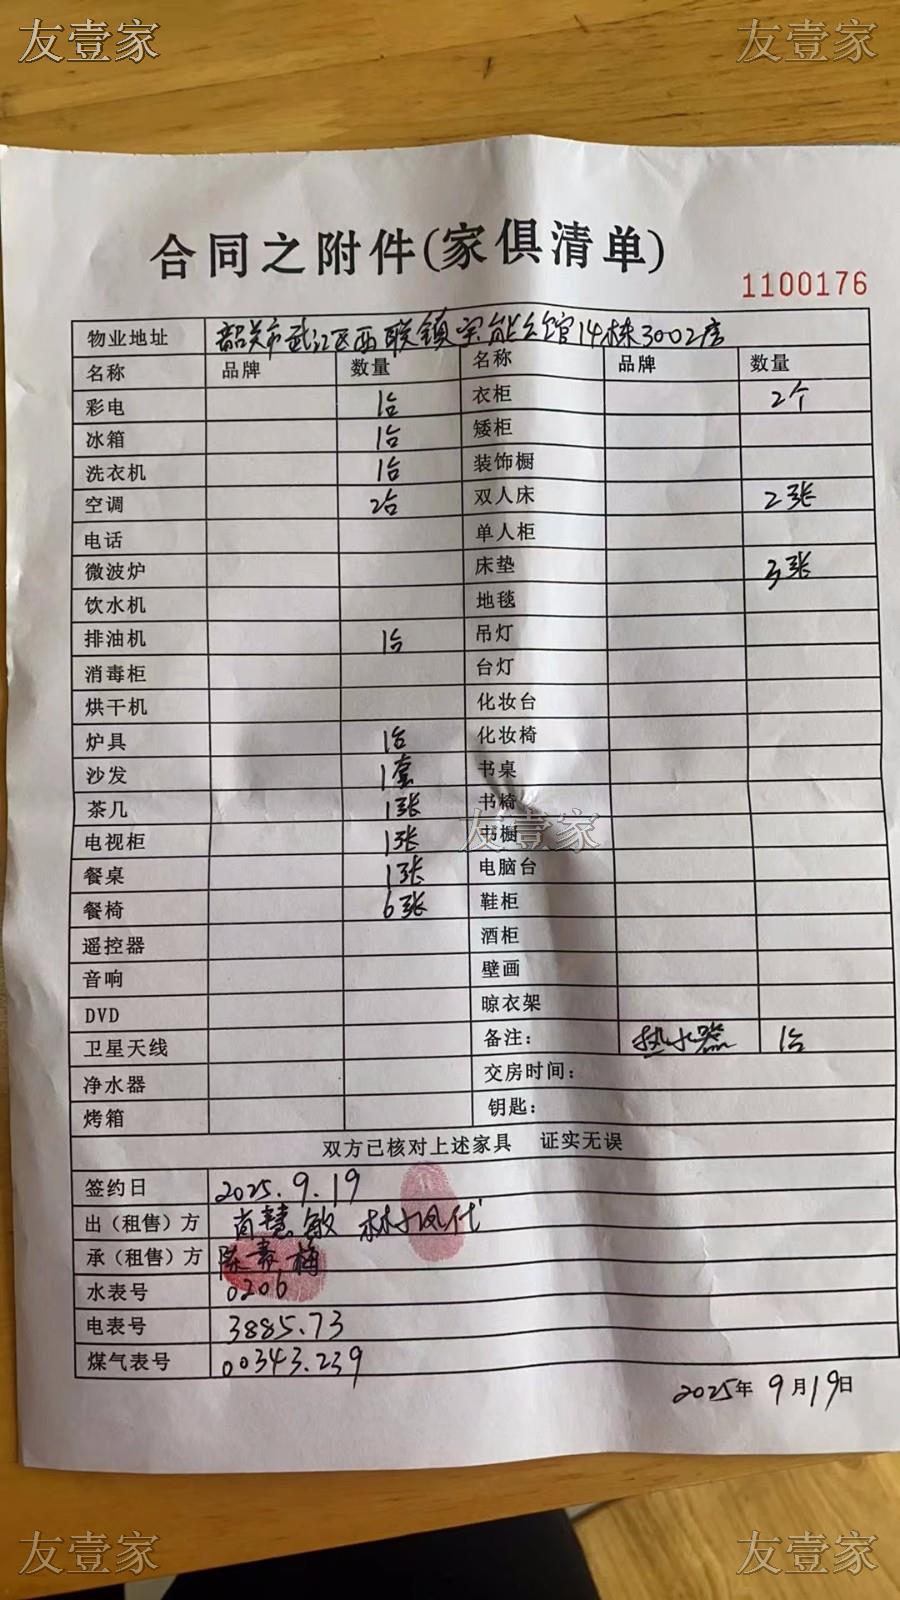 友壹家 友壹家
合同之附件(家俱清单)
1100176
物业地址 韶关市武江区西联镇宝能公馆14栋3002房
名称 品牌 数量 名称 品牌 数量
彩电 1台 衣柜 2个
冰箱 1台 矮柜
洗衣机 1台 装饰橱
空调 2台 双人床 2张
电话 单人柜
微波炉 床垫 3张
饮水机 地毯
排油机 1台 吊灯
消毒柜 台灯
烘干机 化妆台
炉具 1台 化妆椅
沙发 1套 书桌
茶几 1张 书椅
友壹家
电视柜 1张 书橱
餐桌 1张 电脑台
餐椅 6张 鞋柜
遥控器 酒柜
音响 壁画
DVD 晾衣架
卫星天线 备注: 热水器 1台
净水器 交房时间:
烤箱 钥匙:
双方已核对上述家具 证实无误
签约日 2025.9.19
出(租售)方 肖慧敏 林凤代
承(租售)方 陈春梅
水表号 0206
电表号 3885.73
煤气表号 00343.239
2025年9月19日
友壹家 友壹家